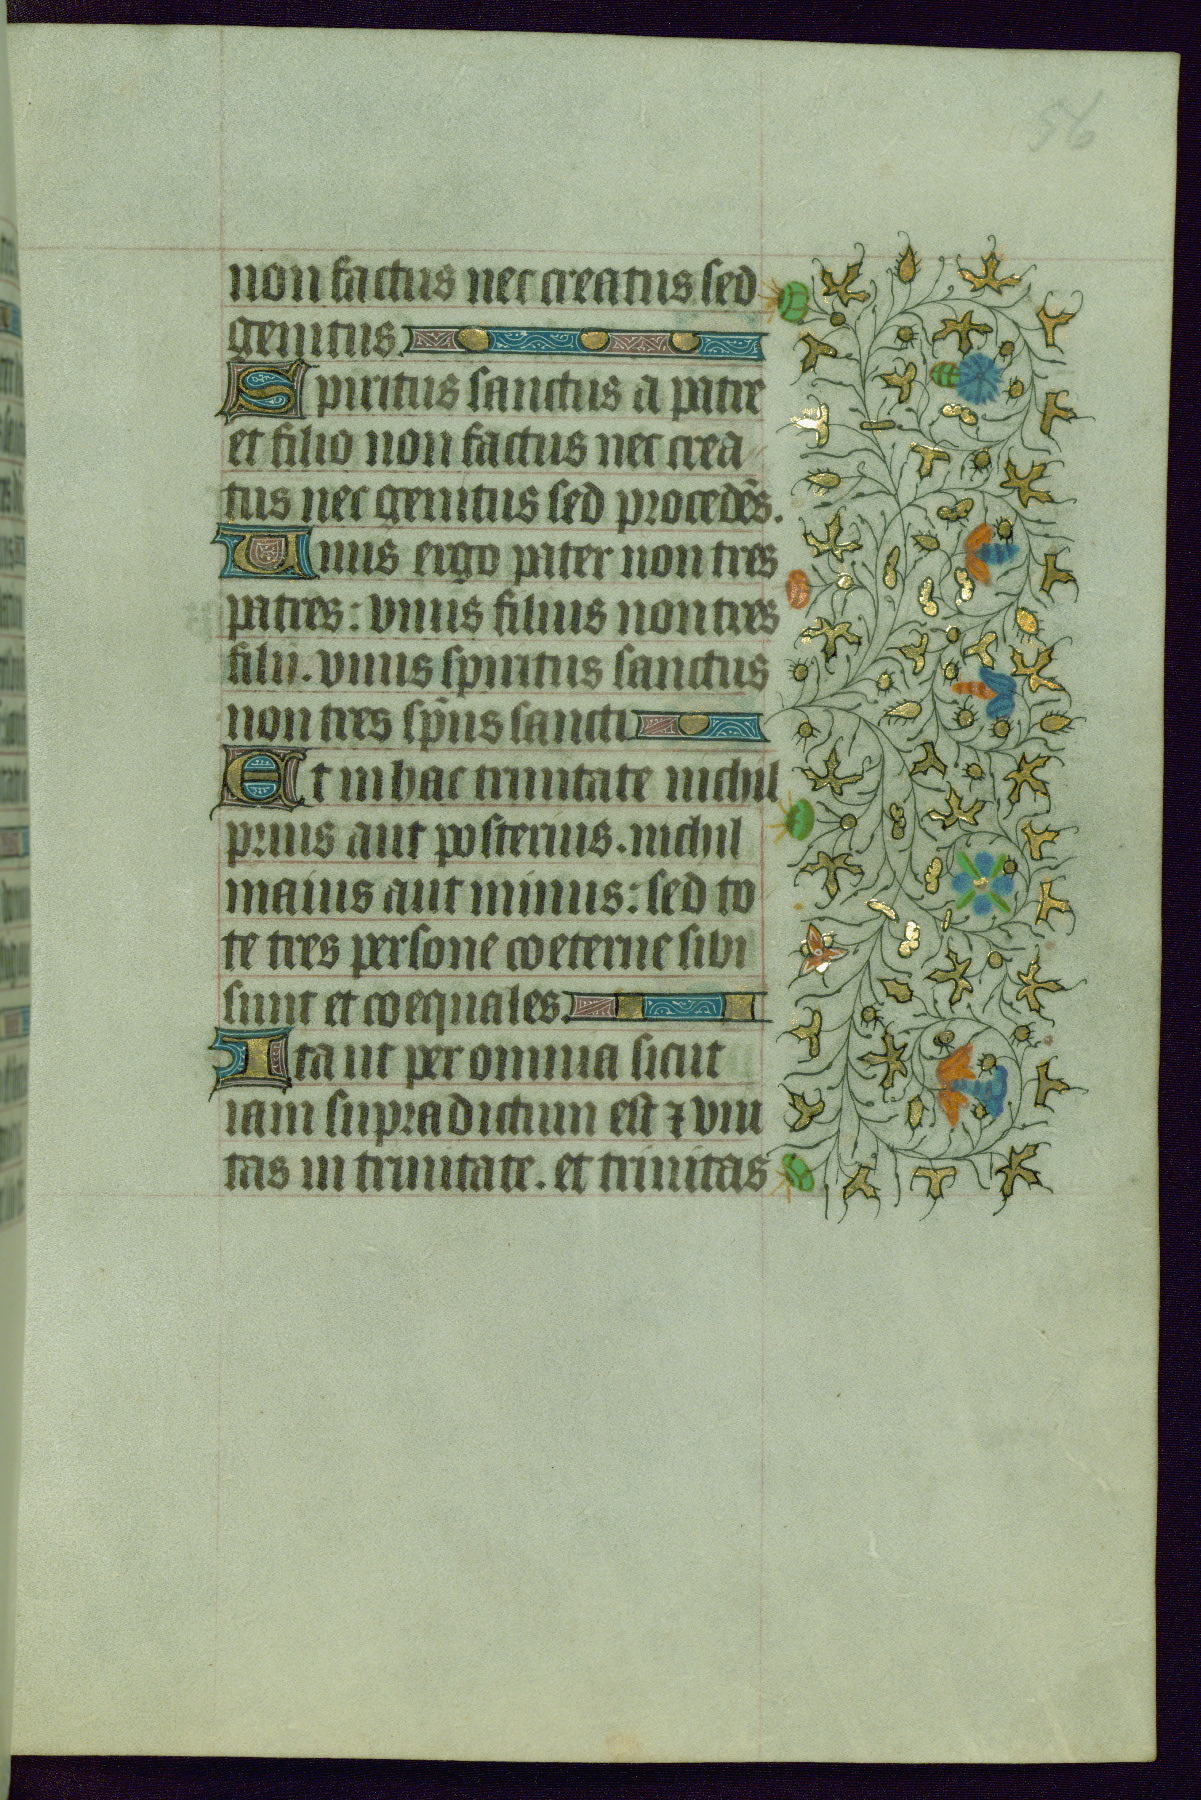 56
non factus nec creatus sed
genitus.
Spiritus sanctus a patre
et filio non factus nec crea
tus nec genitus sed procedēs.
Unus ergo pater non tres
patres: vnus filius non tres
filii. vnus spiritus sanctus
non tres sp̄us sancti
Et in hac trinitate nichil
prius aut posterius. nichil
maius aut minus: sed to
te tres persone coeterne sibi
sunt et coequales.
Ita ut per omnia sicut
iam supradictum est ⁊ vni
tas in trinitate. et trinitas